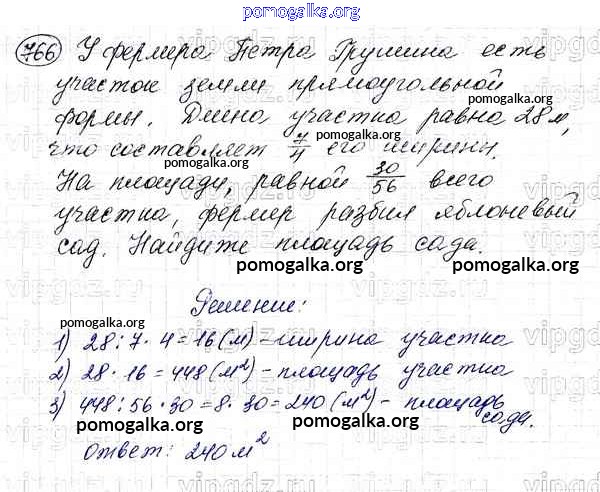 pomogalka.org
766 У фермера Петра Грушина есть
участок земли прямоугольной
pomogalka.org
формы. Длина участка равна 28 м,
что составляет 7/4 его ширины.
pomogalka.org
На площади, равной 30/56 всего
участка, фермер разбил яблоневый
сад. Найдите площадь сада.
pomogalka.org pomogalka.org
Решение:
pomogalka.org
1) 28 : 7 · 4 = 16 (м) - ширина участка
2) 28 · 16 = 448 (м²) - площадь участка
3) 448 : 56 · 30 = 8 · 30 = 240 (м²) - площадь
сада.
pomogalka.org pomogalka.org
ответ: 240 м²